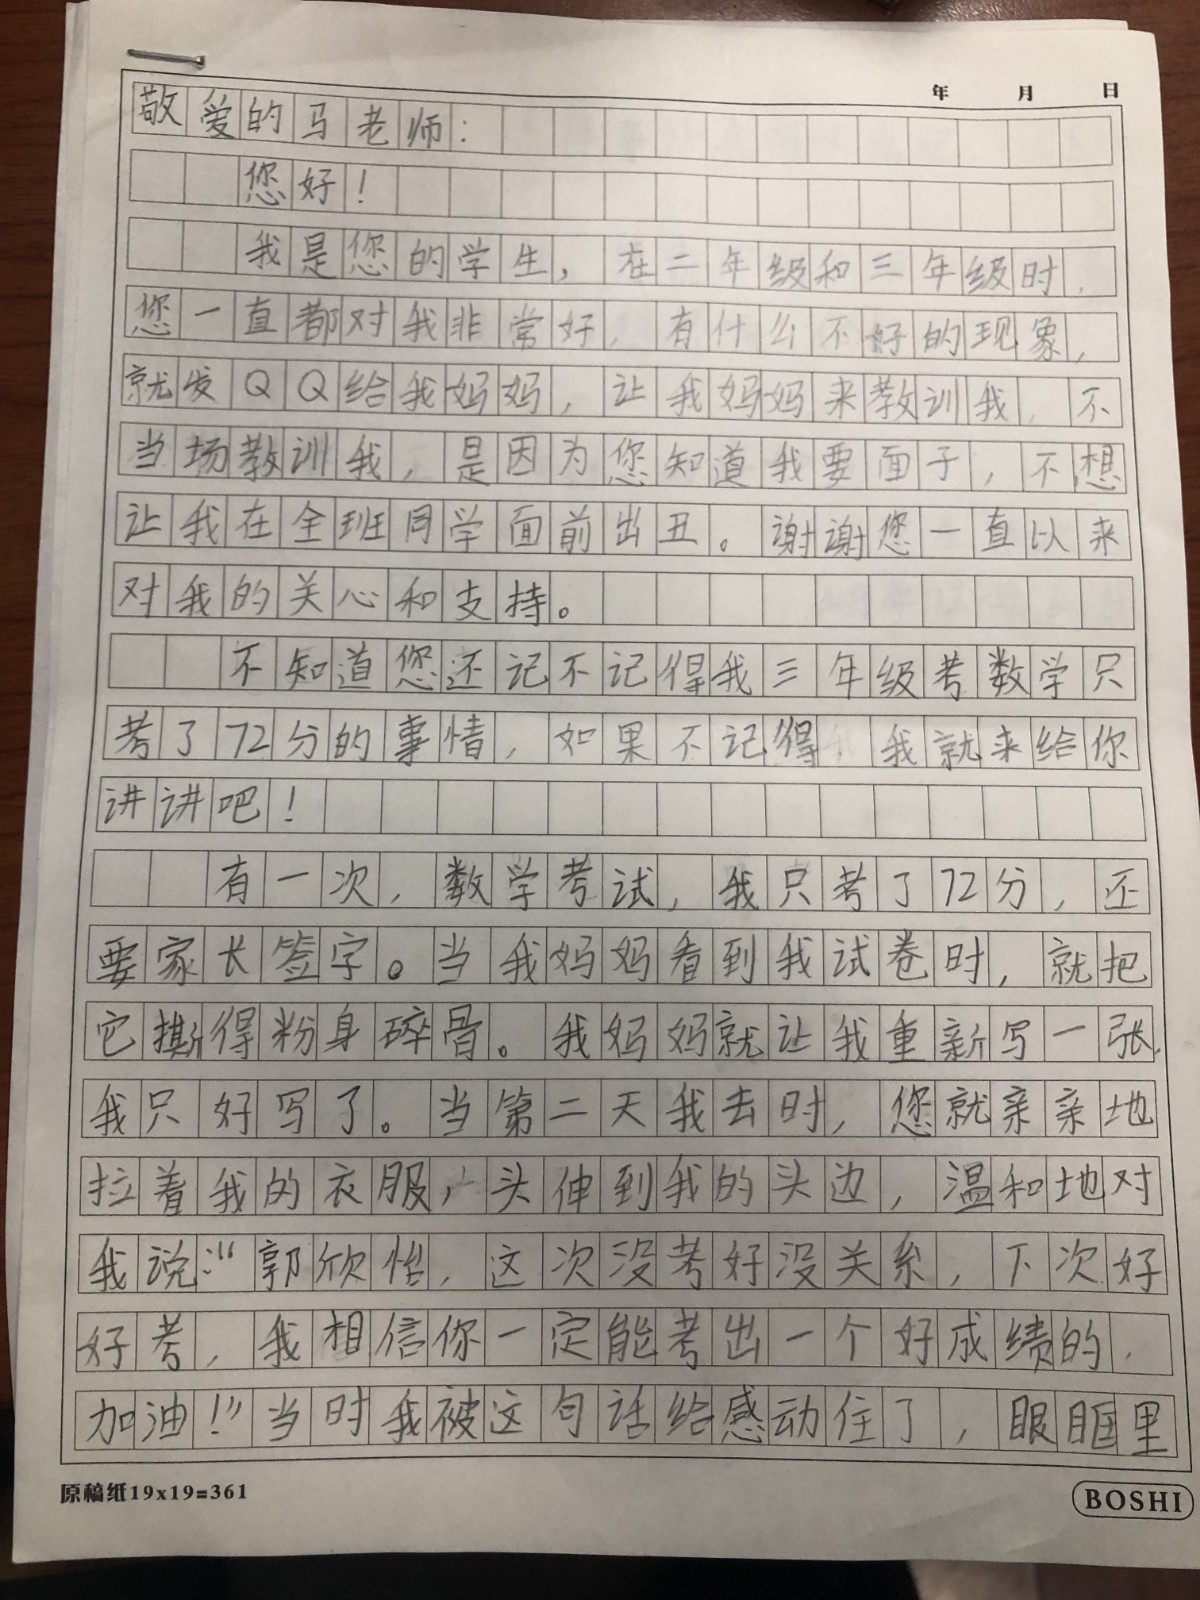 年 月 日
敬爱的马老师：
您好！
我是您的学生，在二年级和三年级时，
您一直都对我非常好，有什么不好的现象，
就发QQ给我妈妈，让我妈妈来教训我，不
当场教训我，是因为您知道我要面子，不想
让我在全班同学面前出丑。谢谢您一直以来
对我的关心和支持。
不知道您还记不记得我三年级考数学只
考了72分的事情，如果不记得，我就来给你
讲讲吧！
有一次，数学考试，我只考了72分，还
要家长签字。当我妈妈看到我试卷时，就把
它撕得粉身碎骨。我妈妈就让我重新写一张，
我只好写了。当第二天我去时，您就亲亲地
拉着我的衣服，头伸到我的头边，温和地对
我说：“郭欣怡，这次没考好没关系，下次好
好考，我相信你一定能考出一个好成绩的，
加油！”当时我被这句话给感动住了，眼眶里
原稿纸19x19=361
BOSHI